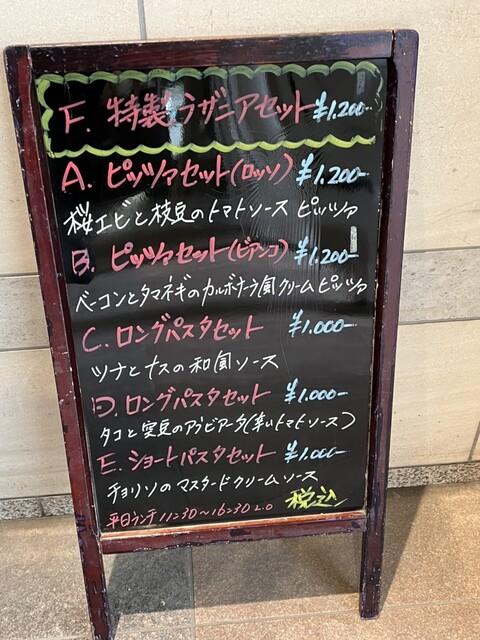 F. 特製ラザニアセット ¥1.200-
A. ピッツァセット(ロッソ) ¥1.200-
桜エビと枝豆のトマトソース ピッツァ
B. ピッツァセット(ビアンコ) ¥1.200-
ベーコンとタマネギのカルボナーラ風クリームピッツァ
C. ロングパスタセット ¥1.000-
ツナとナスの和風ソース
D. ロングパスタセット ¥1.000-
タコと空豆のアラビアータ(辛いトマトソース)
E. ショートパスタセット ¥1.000-
チョリソのマスタードクリームソース
平日ランチ 11:30〜16:30 L.O 税込